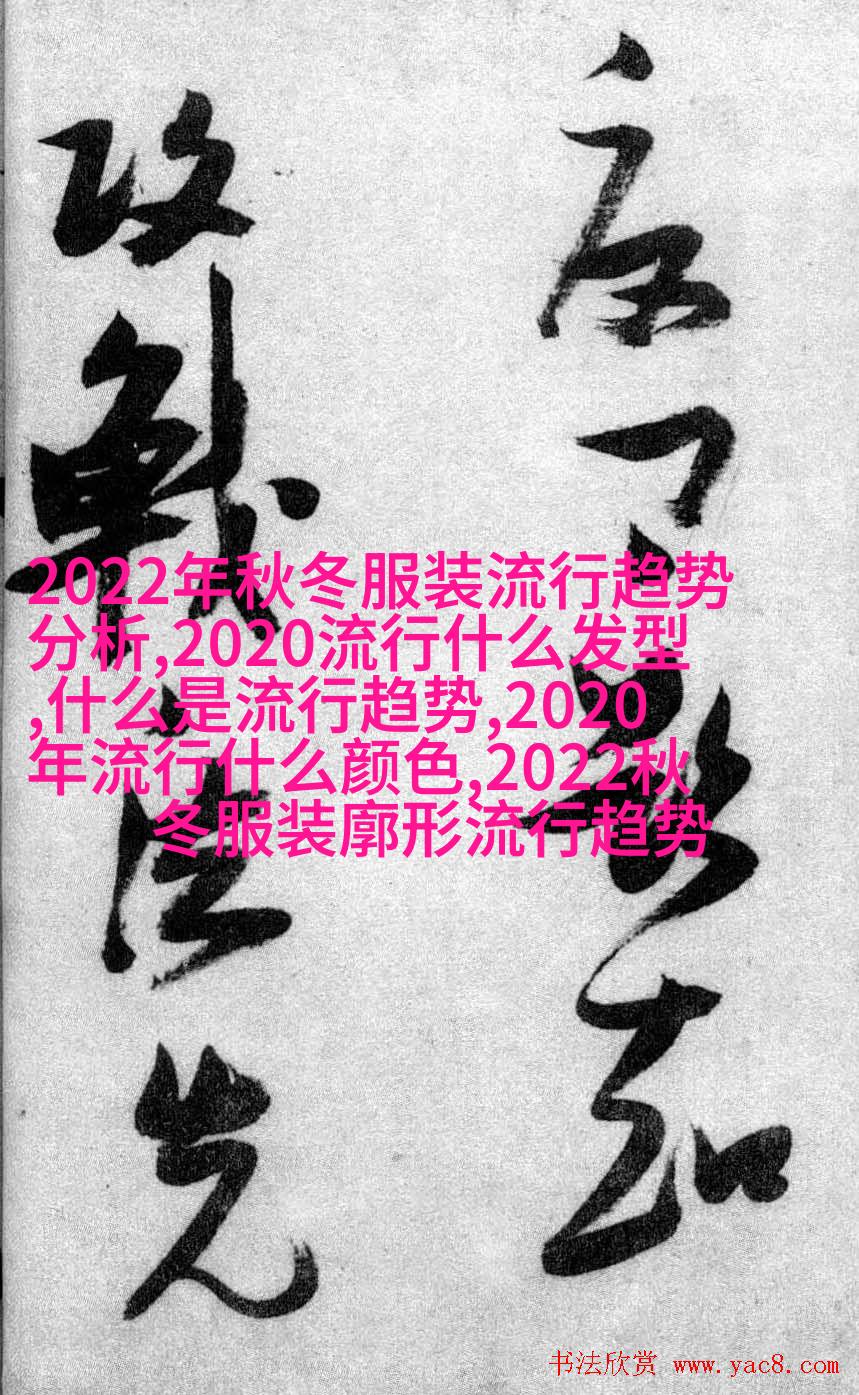 知
攻戰法先
2022年秋冬服装流行趋势
分析,2020流行什么发型
,什么是流行趋势,2020
年流行什么颜色,2022秋
冬服装廓形流行趋势
书法欣赏 www.yac8.com